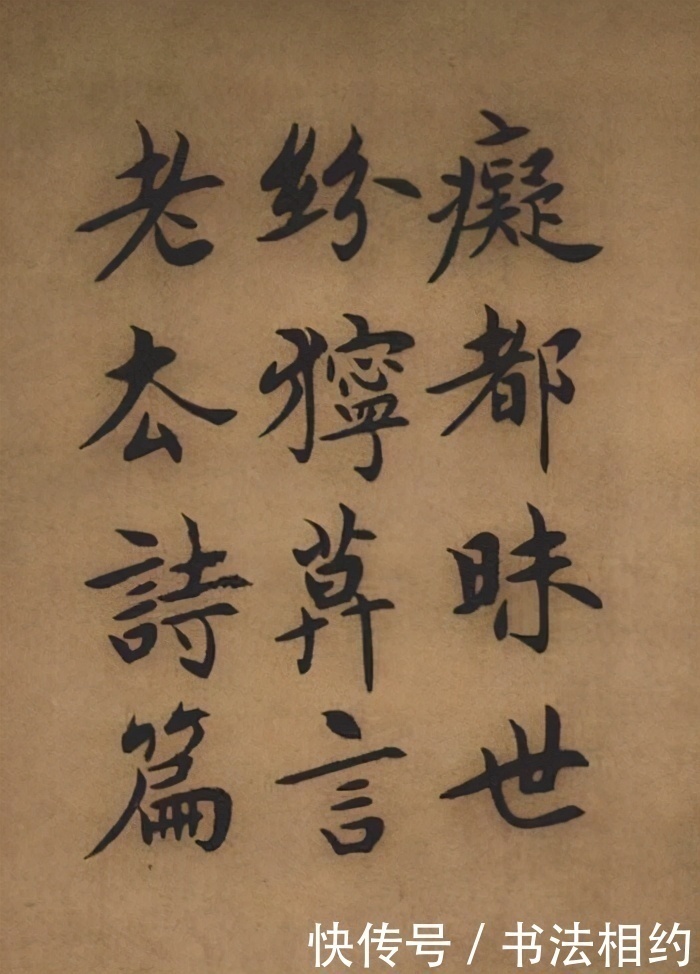 癡都昧世
紛獰言
老厺詩篇
快传号 / 书法相约